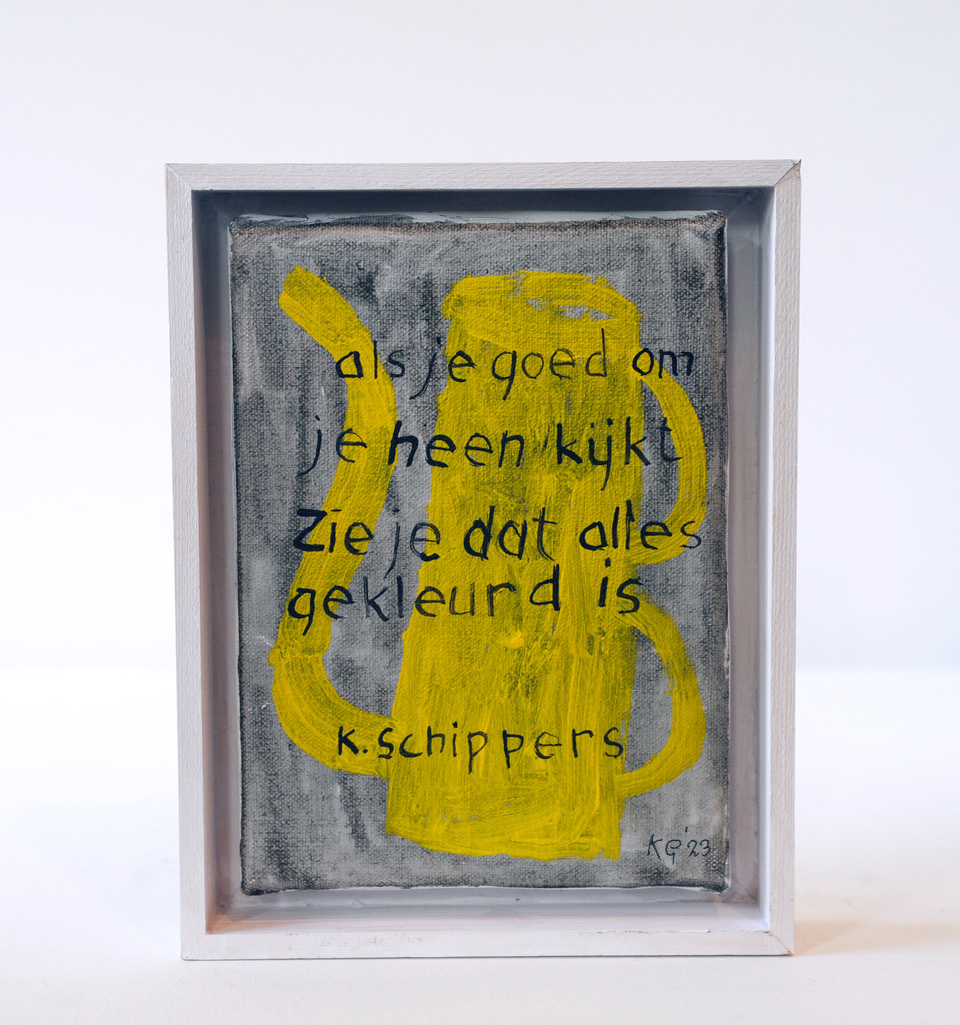 als je goed om
je heen kijkt
Zie je dat alles
gekleurd is
K. Schippers
KG '23